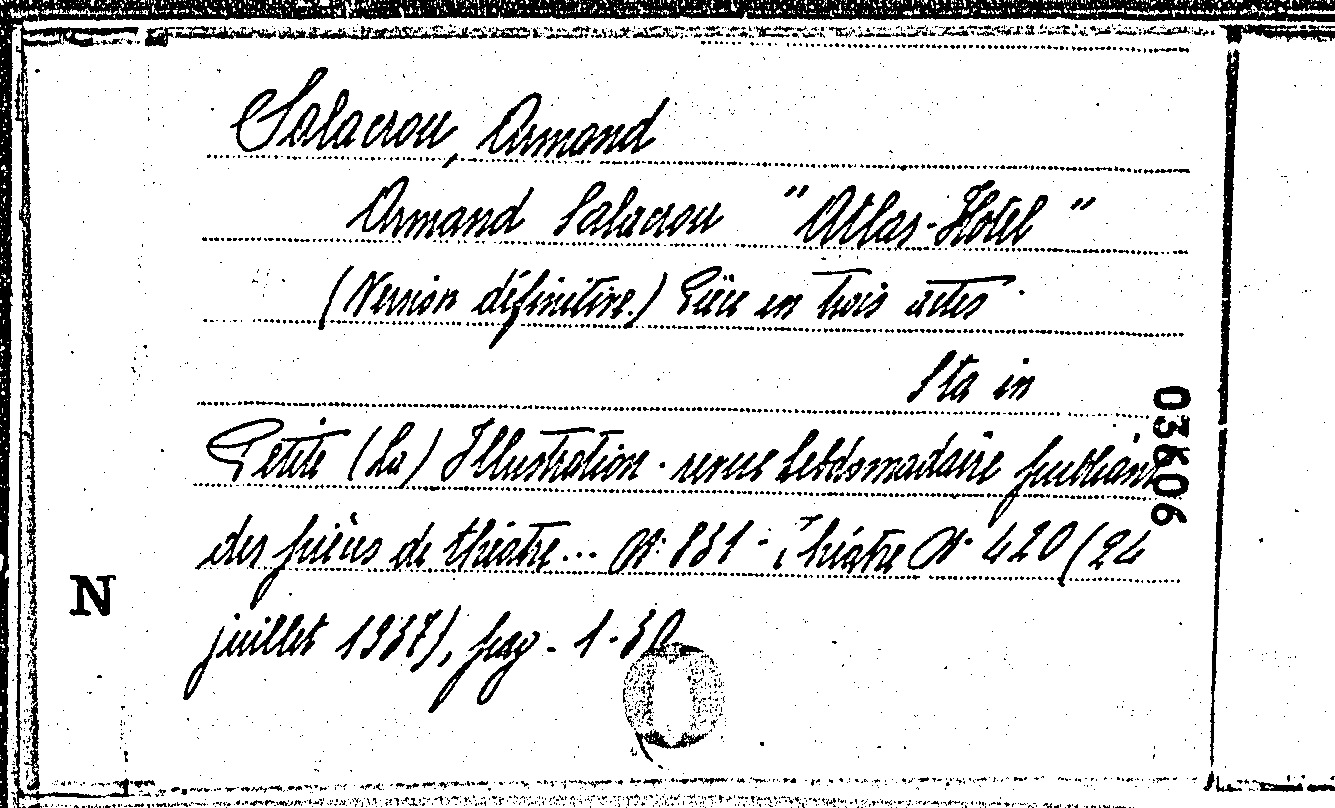 Salacrou, Armand
Armand Salacrou "Atlas-Hôtel"
(Version définitive.) Pièce en trois actes.
Sta in
Petite (La) Illustration. revue hebdomadaire publiant
des pièces de théâtre... N. 831 - Théâtre N. 420 (24
juillet 1937), pag. 1-30
N
03606